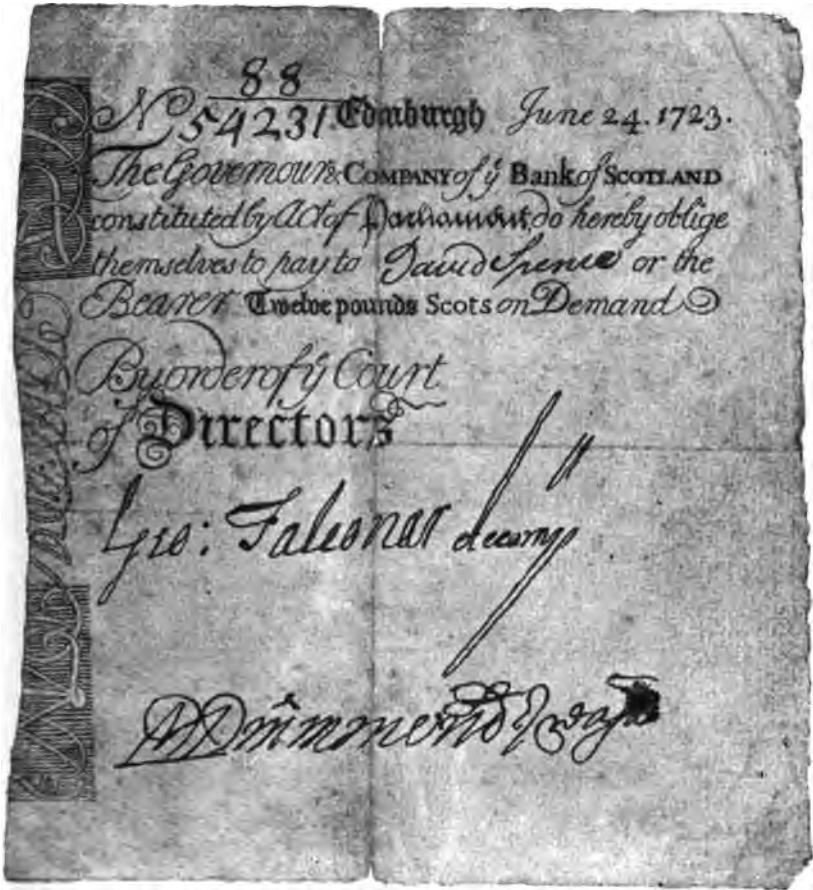 88
No 54231 Edinburgh June 24. 1723.
The Governour & COMPANY of ye Bank of SCOTLAND
constituted by Act of Parliament, do hereby oblige
themselves to pay to David Spence or the
Bearer Twelve pounds Scots on Demand
By order of ye Court
of Directors
Geo: Falconar
Drummond